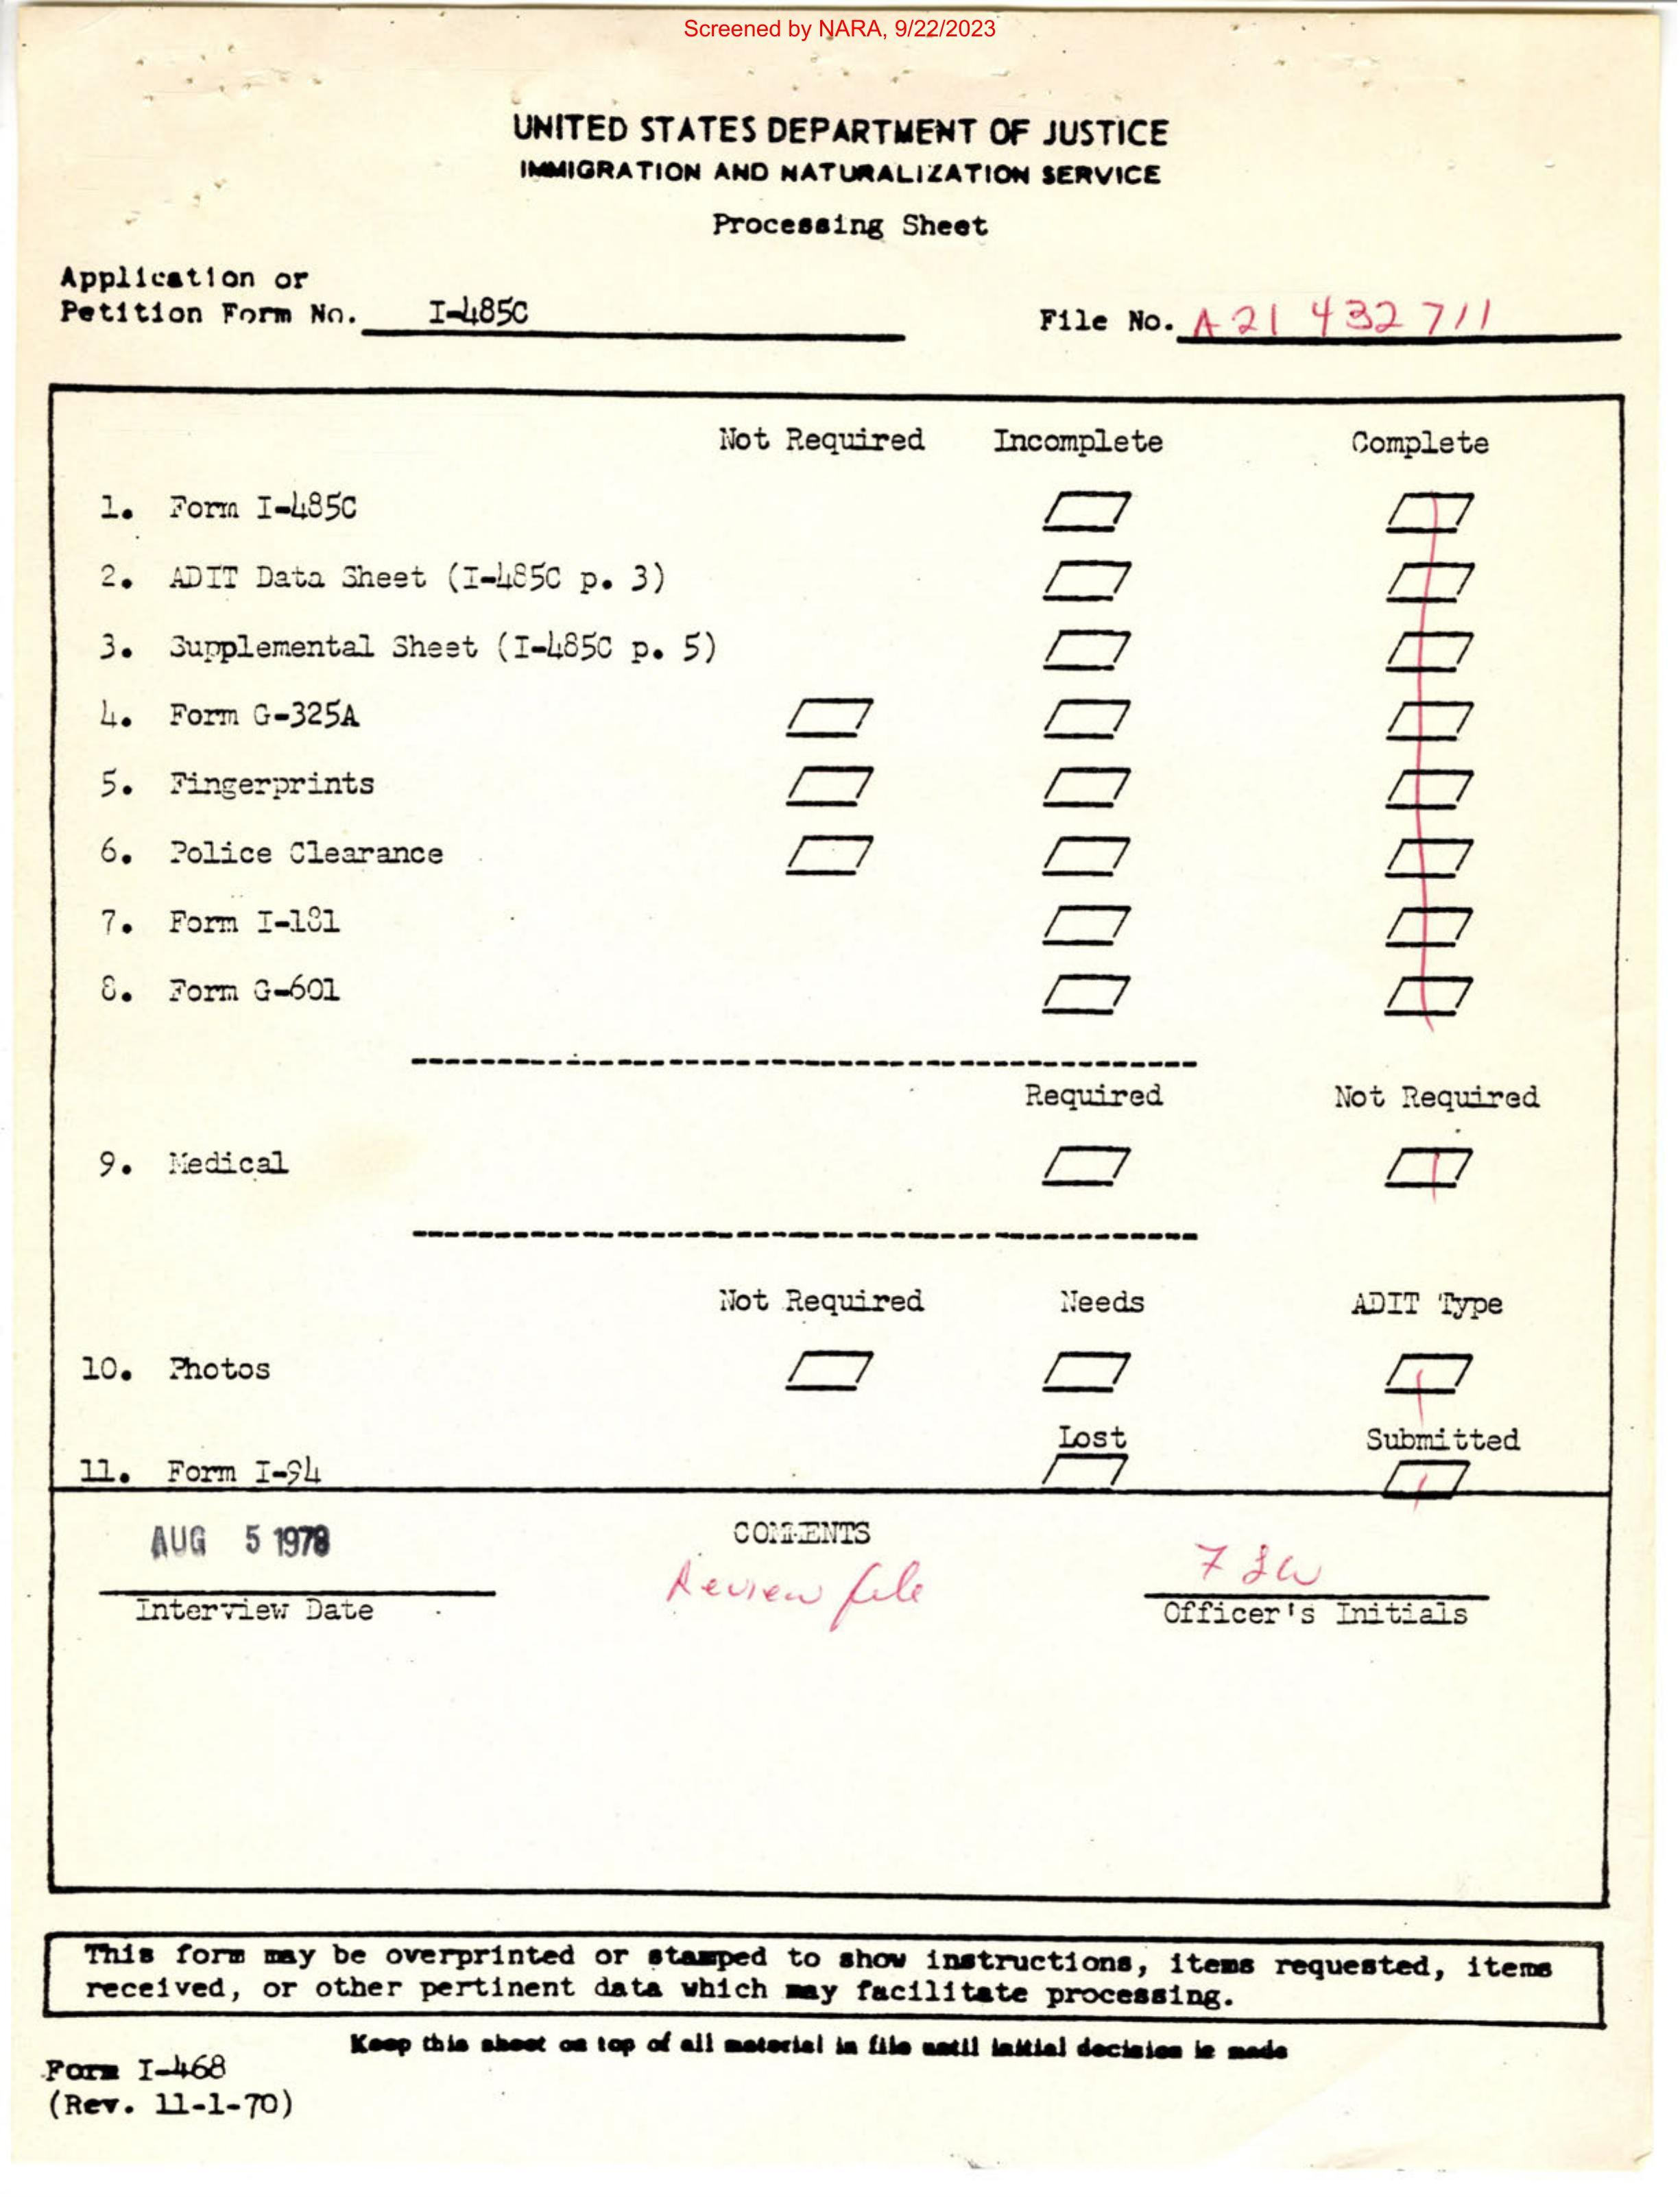 Screened by NARA, 9/22/2023
UNITED STATES DEPARTMENT OF JUSTICE
IMMIGRATION AND NATURALIZATION SERVICE
Processing Sheet
Application or
Petition Form No. I-485C
File No. A 21 432 711
Not Required Incomplete Complete
1. Form I-485C
2. ADIT Data Sheet (I-485C p. 3)
3. Supplemental Sheet (I-485C p. 5)
4. Form G-325A
5. Fingerprints
6. Police Clearance
7. Form I-181
8. Form G-601
Required Not Required
9. Medical
Not Required Needs ADIT Type
10. Photos
Lost Submitted
11. Form I-94
AUG 5 1978
COMMENTS
Review file
Interview Date
Officer's Initials
This form may be overprinted or stamped to show instructions, items requested, items
received, or other pertinent data which may facilitate processing.
Keep this sheet on top of all material in file until initial decision is made
Form I-468
(Rev. 11-1-70)